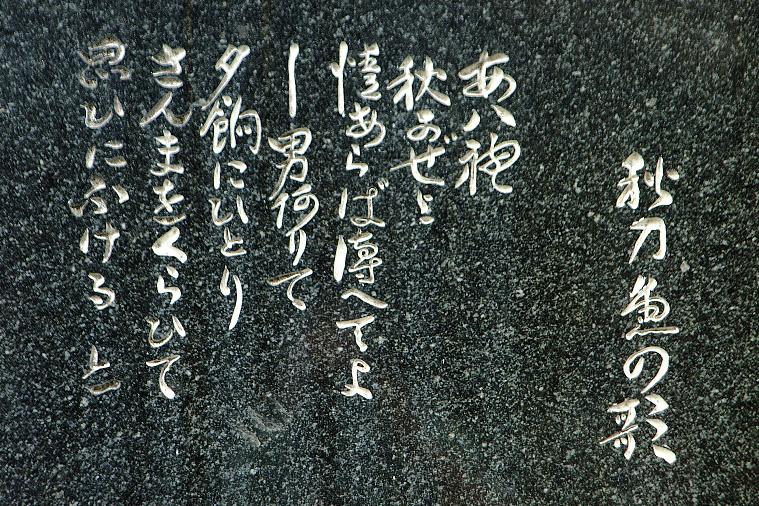 秋刀魚の歌
あハれ
秋かぜよ
情あらば傳へてよ
― 男阿りて
夕餉にひとり
さんまをくらひて
思ひにふける と